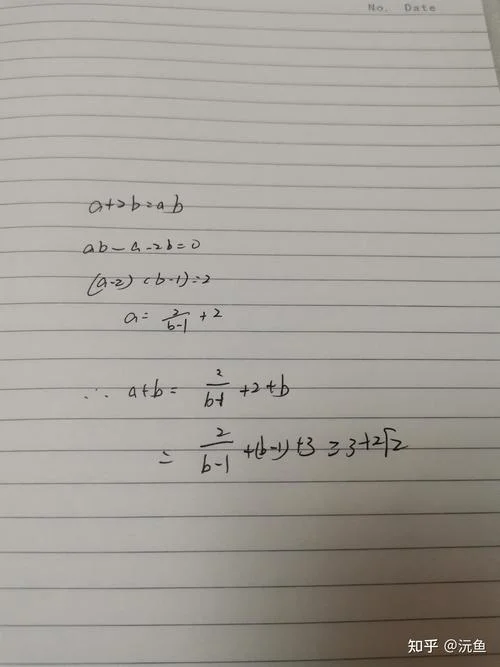 No. Date
a+2b=ab
ab-a-2b=0
(a-2)(b-1)=2
a=\frac{2}{b-1}+2
∴ a+b=\frac{2}{b-1}+2+b
=\frac{2}{b-1}+(b-1)+3≥3+2√2
知乎 @沅鱼